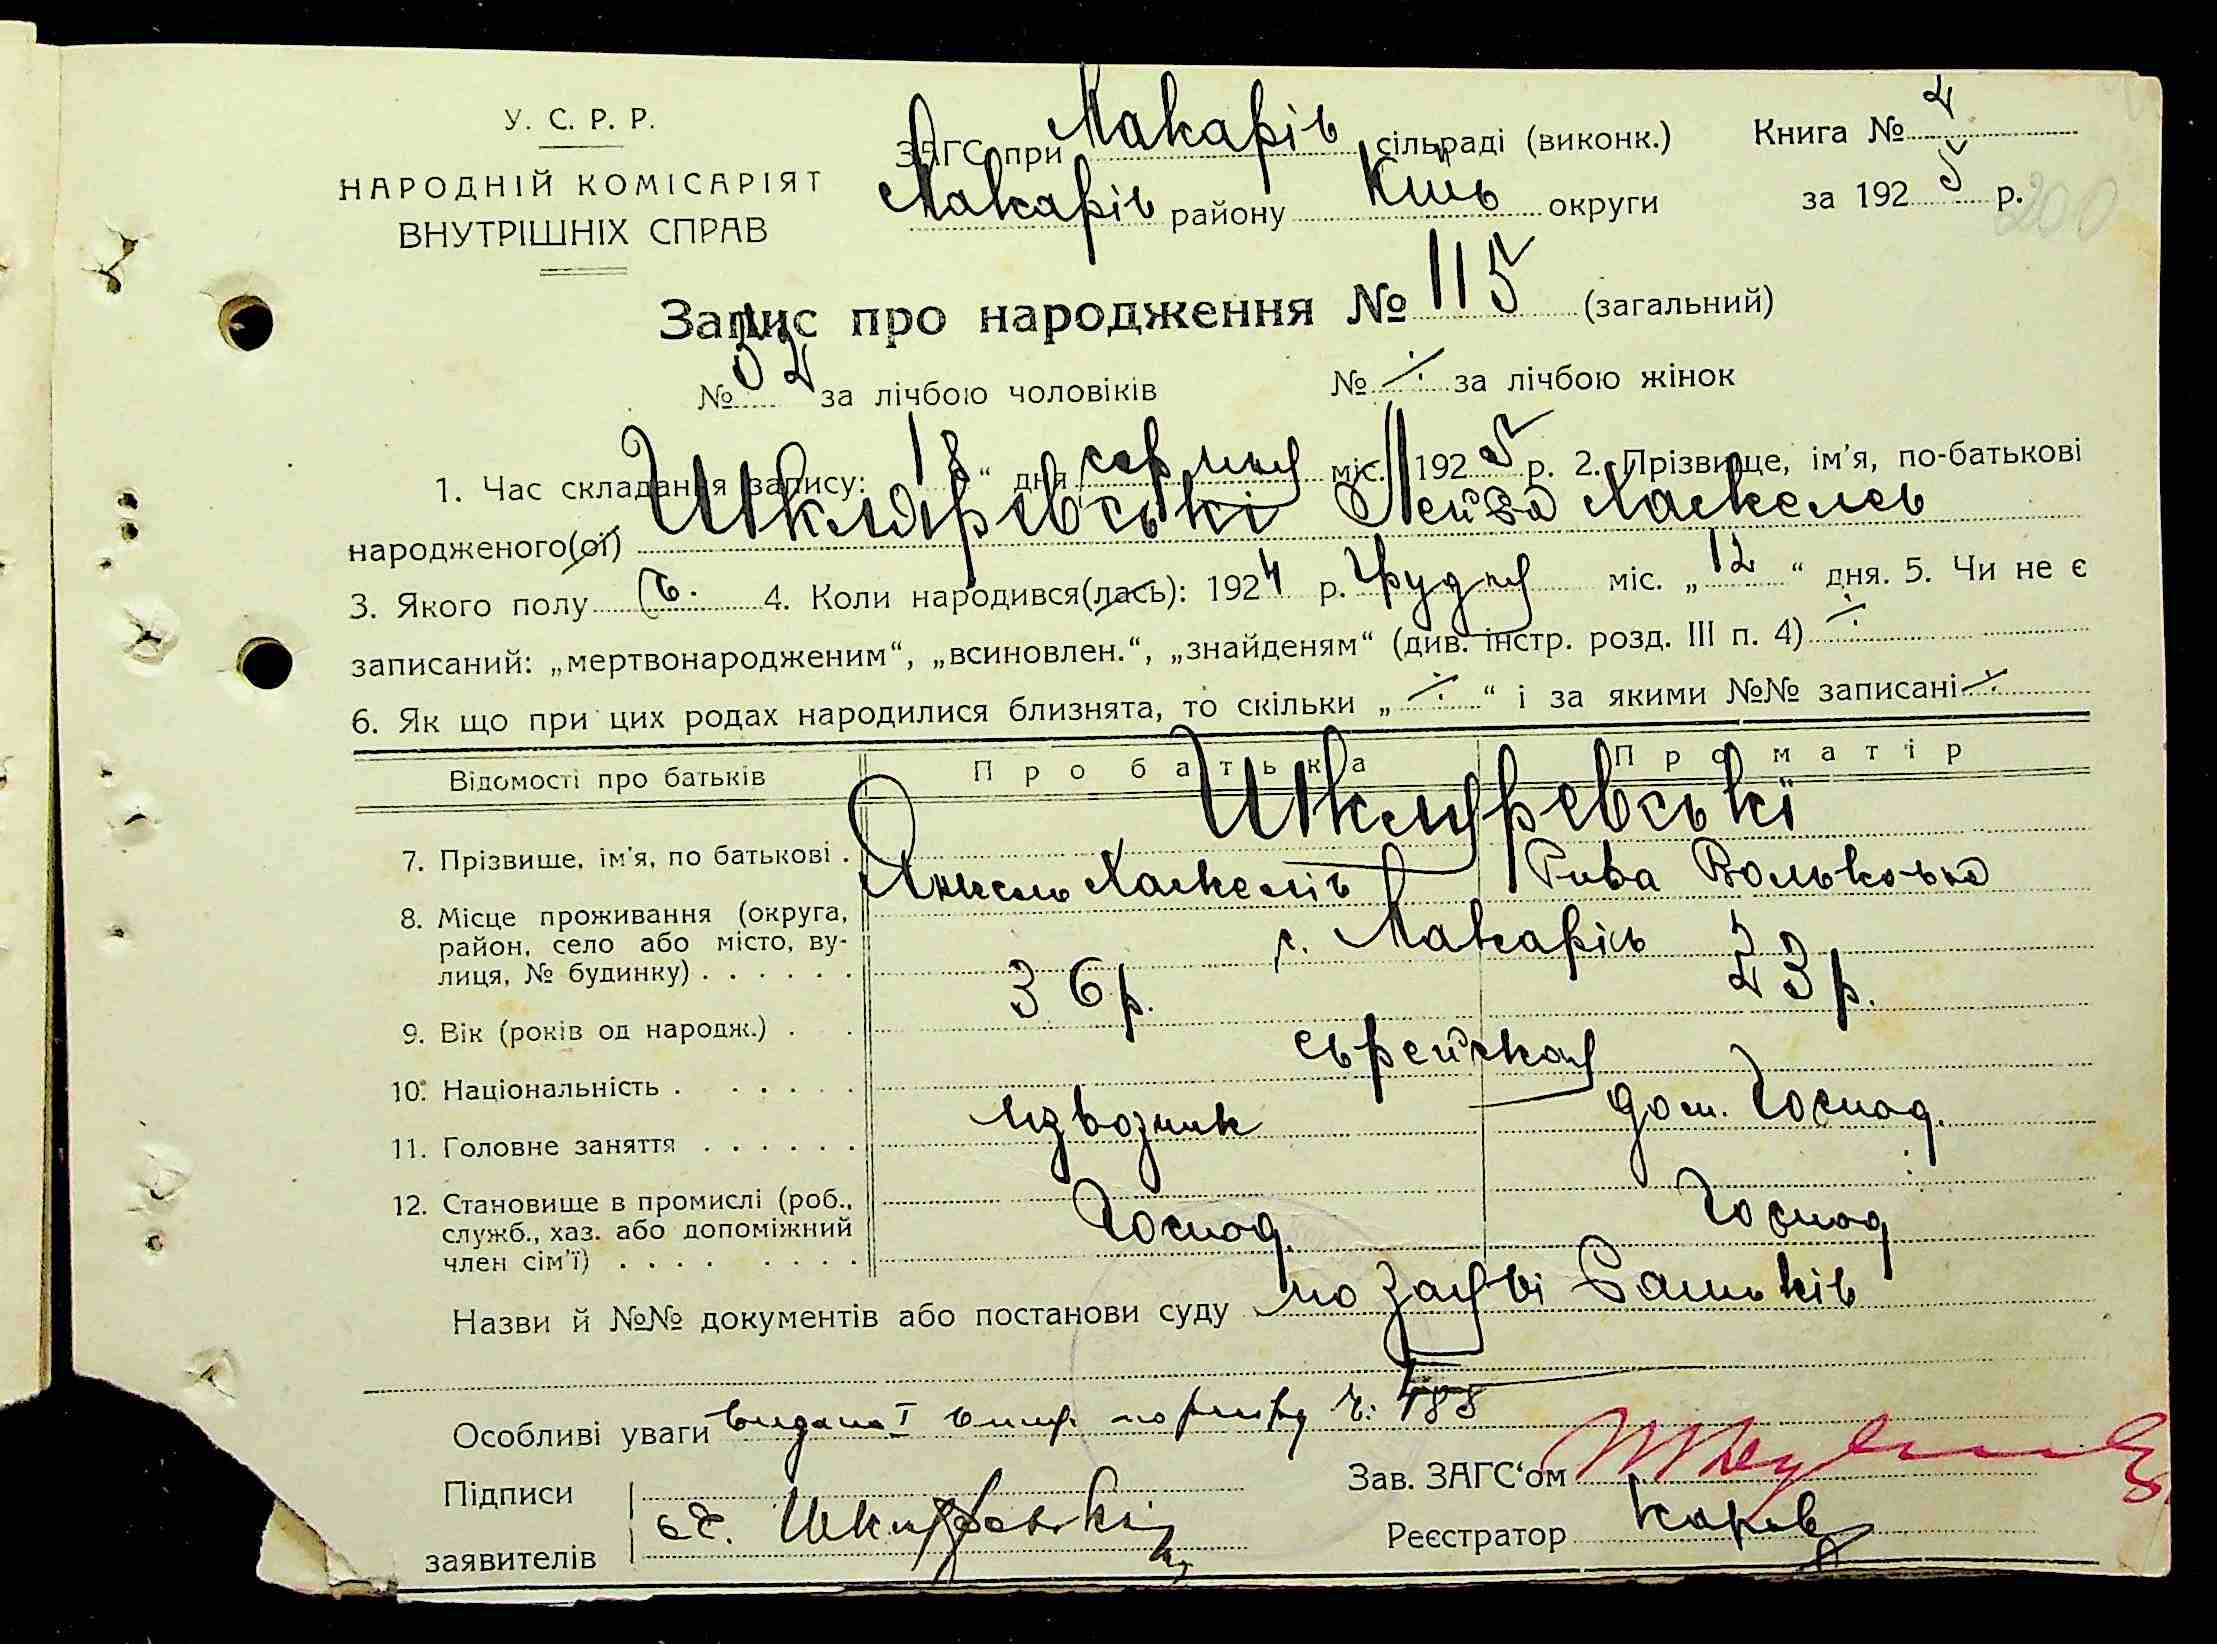 У. С. Р. Р.
НАРОДНІЙ КОМІСАРІЯТ
ВНУТРІШНІХ СПРАВ
ЗАГС при Макарів сільраді (виконк.) Книга № 2
Макарів району Київ округи за 1925 р.
200
Запис про народження № 115 (загальний)
№ 52 за лічбою чоловіків № ⁒ за лічбою жінок
1. Час складання запису: 18 “ дня серпня міс. 1925 р. 2. Прізвище, ім’я, по-батькові
народженого(ої) Шкляревські Лейзо Хаскелев
3. Якого полу ч. 4. Коли народився(лась): 1924 р. Грудня міс. „ 12 “ дня. 5. Чи не є
записаний: „мертвонародженим“, „всиновлен.“, „знайденям“ (див. інстр. розд. III п. 4) ⁒
6. Як що при цих родах народилися близнята, то скільки „ ⁒ “ і за якими №№ записані ⁒
Відомості про батьків Про батька Про матір
Шкляревські
7. Прізвище, ім’я, по батькові . Янкель Хаскелів Рива Вольковна
8. Місце проживання (округа,
район, село або місто, ву-
лиця, № будинку) . . . . . . с. Макарів
9. Вік (років од народж.) . . 36 р. 23 р.
10. Національність . . . . . . єврейская
11. Головне заняття . . . . . . извозчик дом. Господ.
12. Становище в промислі (роб.,
служб., хаз. або допоміжний
член сім’ї) . . . . . . . . Господ. Господ
Назви й №№ документів або постанови суду по заяві батьків
Особливі уваги видано І вип. по
Підписи
заявителів Шкляревскій
Зав. ЗАГС‘ом
Реєстратор